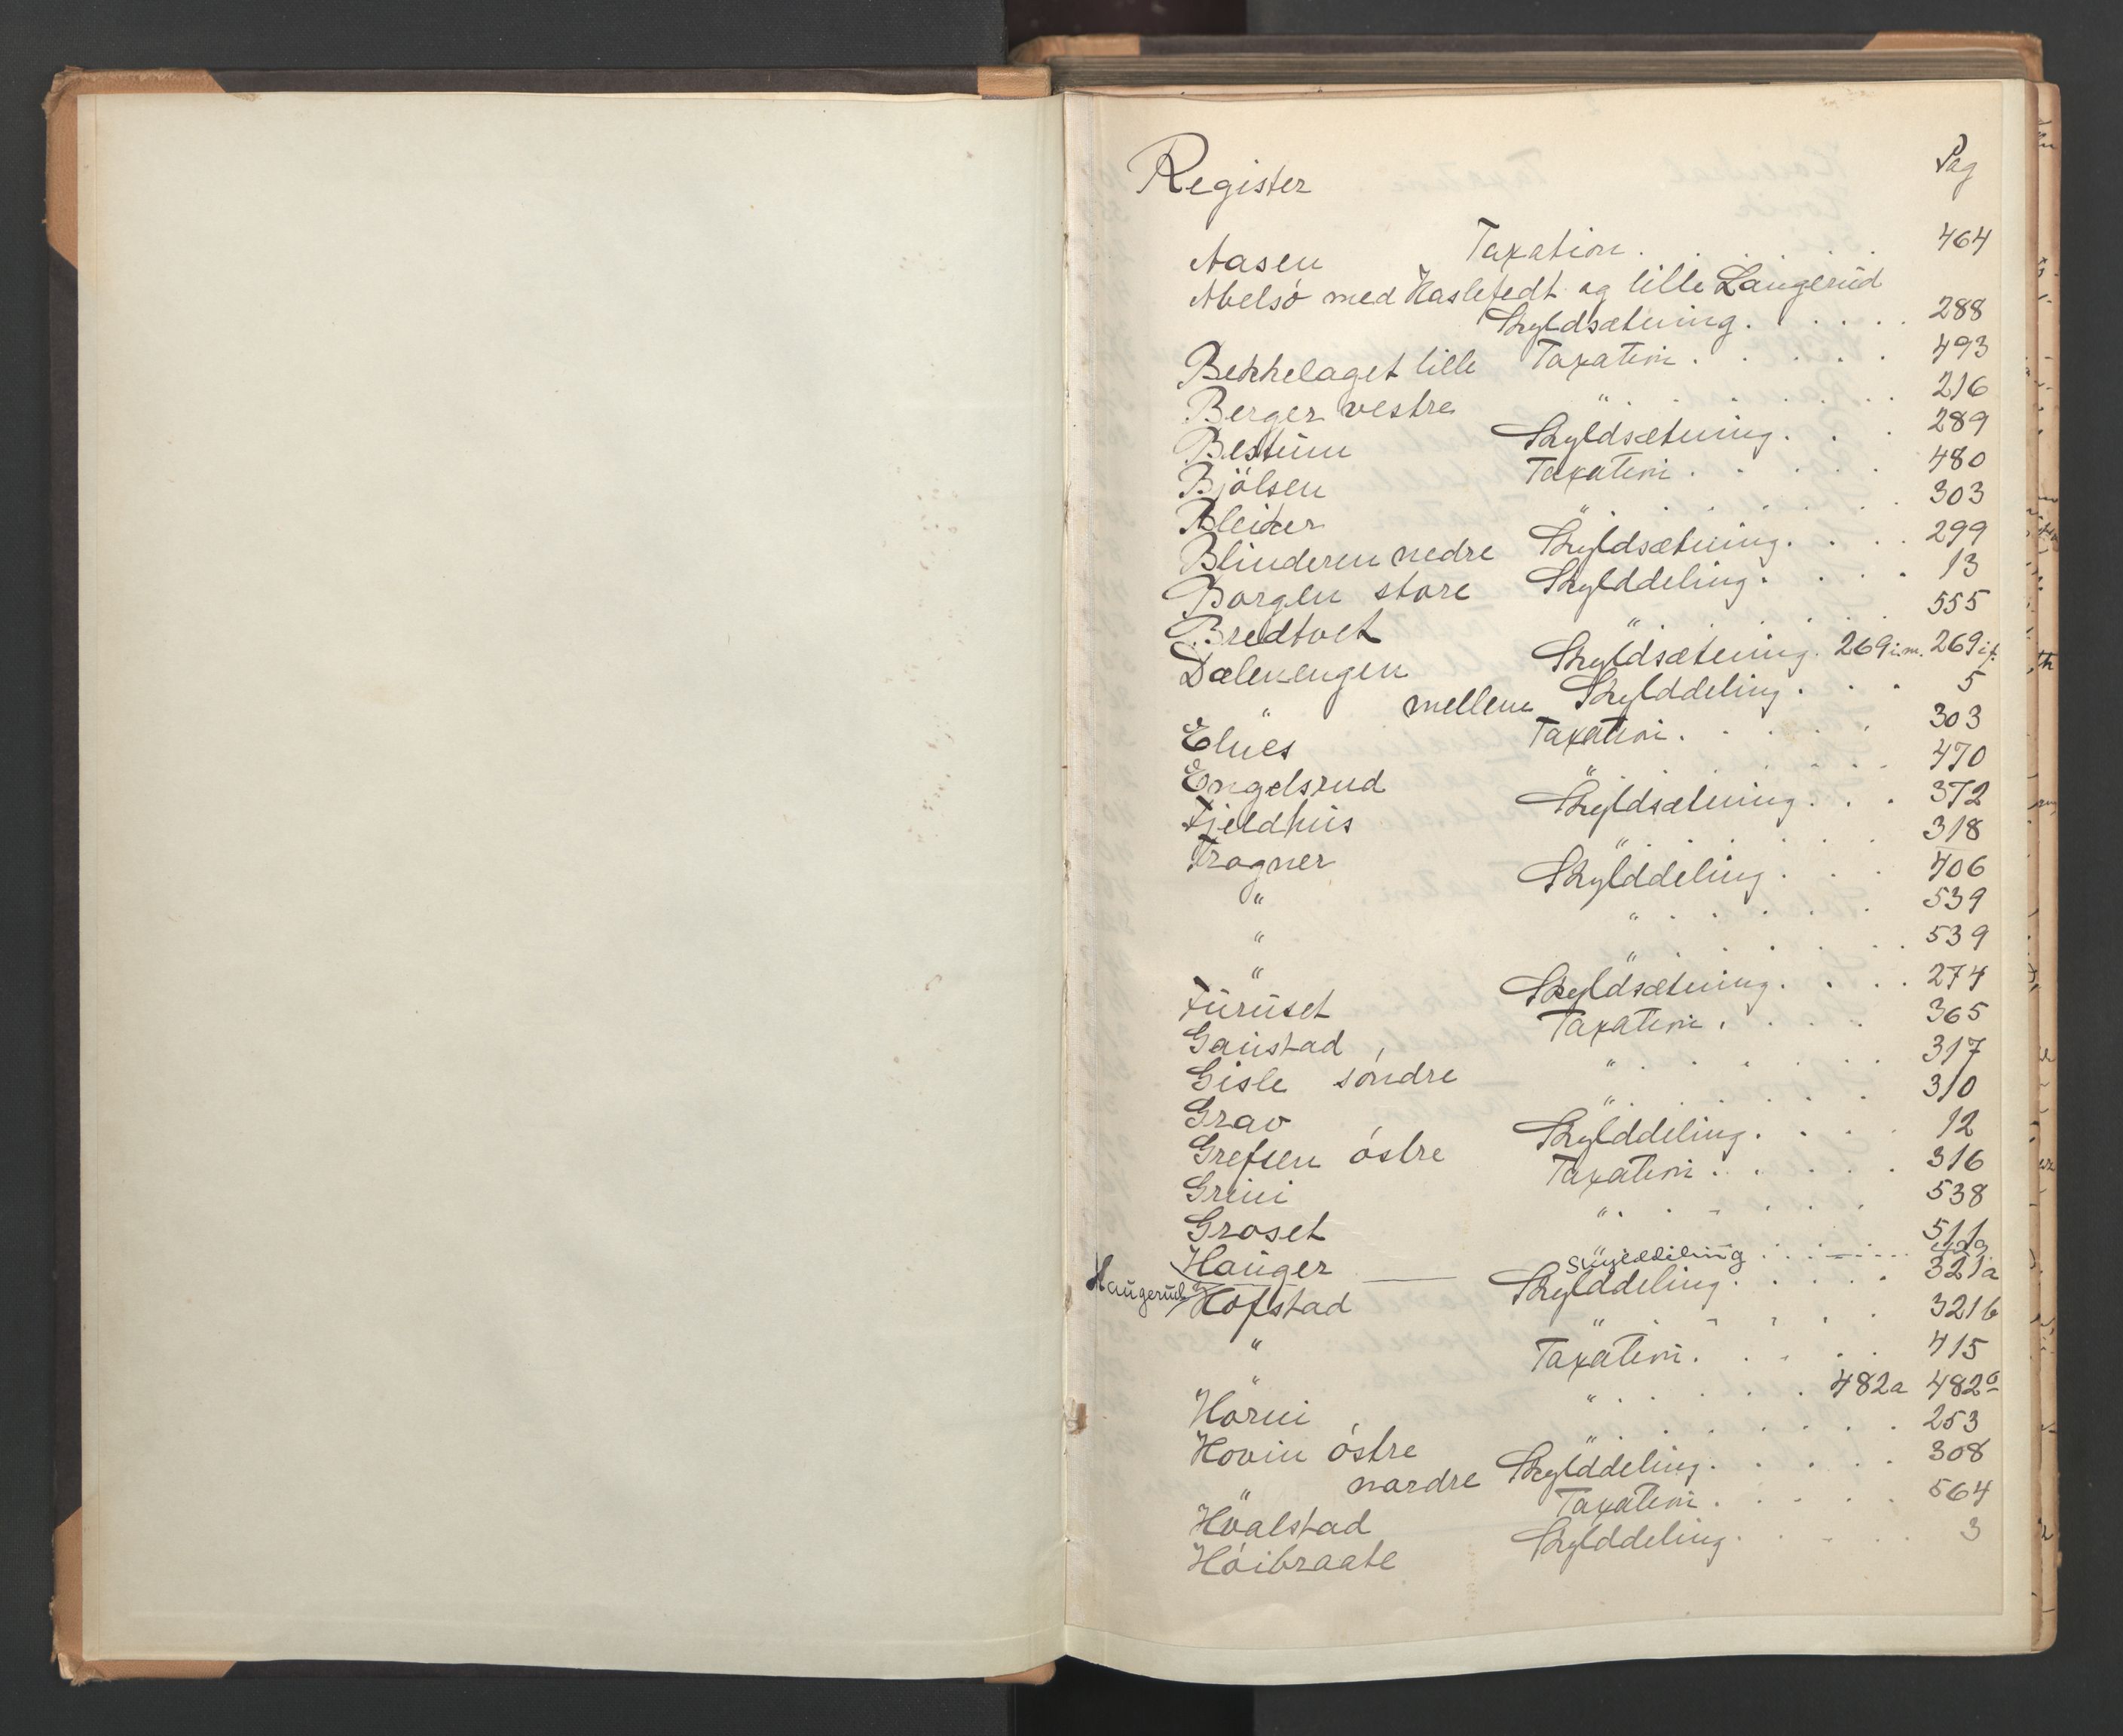 Register Pag
Aasen Taxation . . . . 464
Abelsö med Haslefedt og lille Langerud
Skyldsætning . . . . . 288
Bekkelaget lille Taxation . . . . . 493
Berger vestre " . . . . . 216
Bestum Skyldsætning . . . 289
Bjölsen Taxation . . . . . 480
Bleiker " . . . . . 303
Blinderen nedre Skyldsætning . . . . 299
Borgen store Skylddeling . . . . 13
Bredtvet " . . . . . 555
Dælenengen Skyldsætning . 269 i.m. 269 i.f.
" mellem Skylddeling . . . 5
Elnes Taxation . . . . . 303
Engelsrud " . . . . . 470
Fjeldhus Skyldsætning . . . 372
Frogner " . . . . . 318
" Skylddeling . . . 406
" " . . . . . 539
" " . . . . . 539
Furuset Skyldsætning . . . . 274
Gaustad Taxation . . . . 365
Gisle söndre " . . . . . 317
Grav " . . . . . 310
Grefsen östre Skylddeling . . . . 12
Grini Taxation . . . . . 316
Groset " . . . . . 538
Hauger " . . . . . 511
Haugerud Skylddeling
Hofstad Skylddeling . . . . . 321a
" " . . . . . 321b
" Taxation . . . . . 415
Horni " . . . . . 482a 482b
Hovin östre " . . . . . 253
" nordre Skylddeling . . . . . 308
Hvalstad Taxation . . . . . 564
Höibraate Skylddeling . . . . . 3